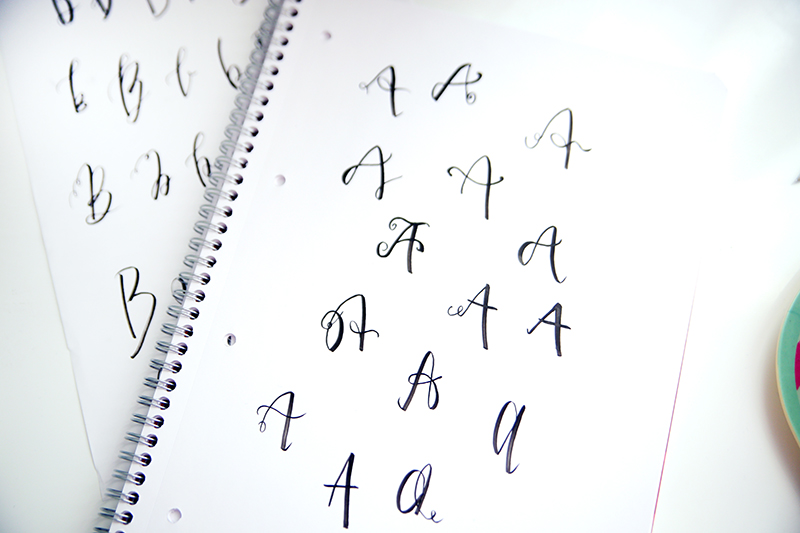 b B b b
B b b
B
A A
A
A A
A A
A A A
A
A a
A a